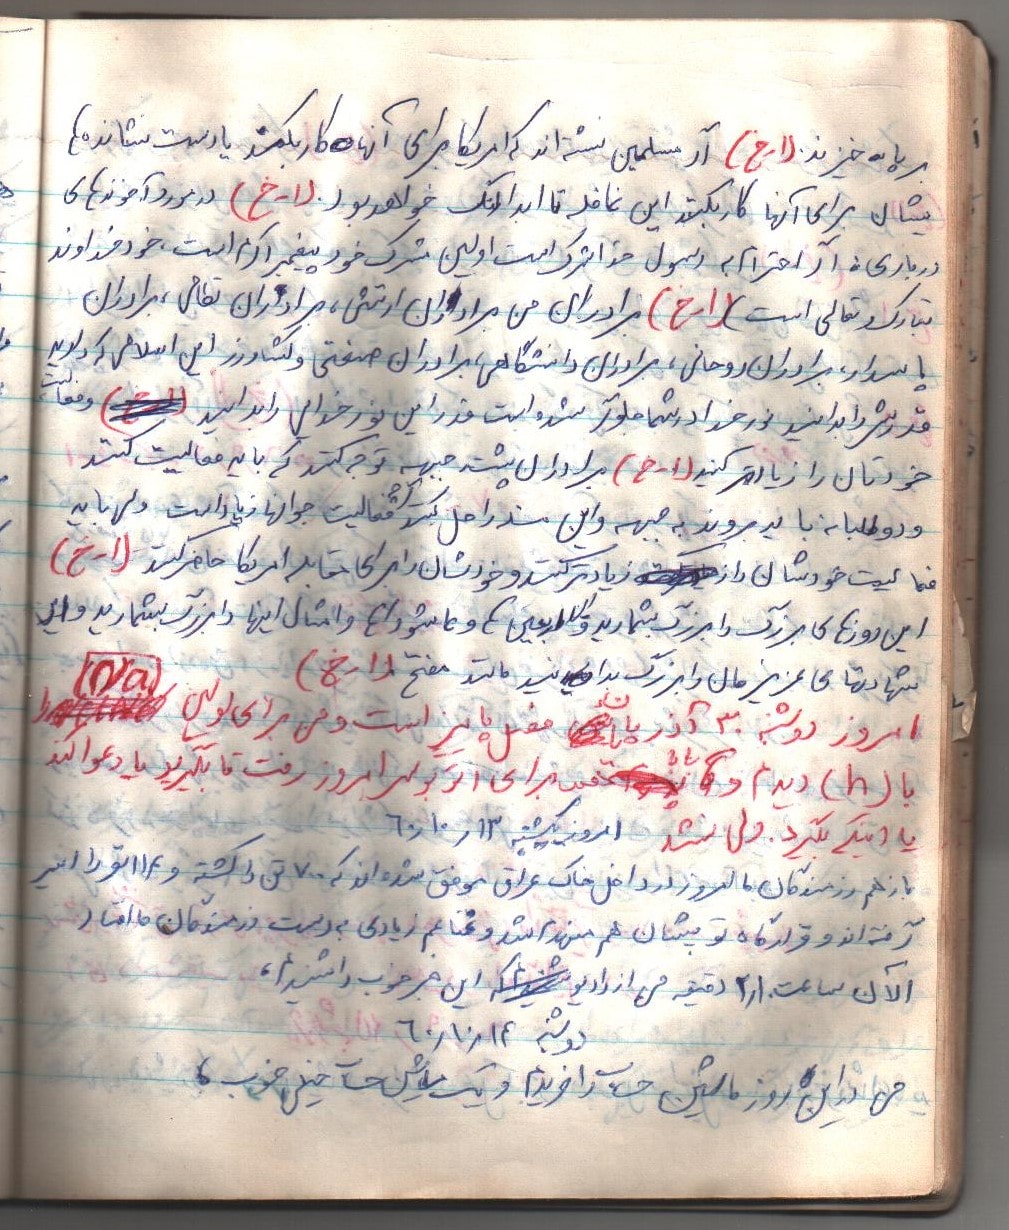 برپا به خیزند. (ا-خ) اگر مسلمین نشسته‌اند که امریکا برای آنها کار بکند یا دست نشانده‌های
یشان برای آنها کار بکند این قافله تا ابد لنگ خواهد بود. (ا-خ) در مورد آخوندهای
درباری: اگر احترام به رسول خدا شرک است اولین مشرک خود پیغمبر اکرم است، خود خداوند
تبارک و تعالی است (ا-خ) برادران من برادران ارتشی، برادران نظامی، برادران
پاسدار، برادران روحانی، برادران دانشگاهی، برادران صنعتی و کشاورز این اسلامی که دارید
قدرش را بدانید نور خدا در شما جلوگر شده است قدر این نور خدایی را بدانید (ا-خ) و فعالیت
خودتان را زیادتر کنید (ا-خ) برادران پشت جبهه توجه کنند که باید فعالیت کنند
و دوطلبانه باید بروند به جبهه و این مسئله را حل کنند گرچه فعالیت جوانها زیاد است ولی باید
فعالیت خودشان را زیادتر کنند و خودشان را برای مقابله امریکا حاضر کنند (ا-خ)
این روزهای بزرگ را بزرگ بشمارید و اربعین‌ها و عاشوراها و امثال اینها را بزرگ بشمارید و این
شهادتهای عزیزمان را بزرگ بدانید مانند مفتح (ا-خ)
امروز دوشنبه ۳۰ آذر پایان فصل پاییز است و من برای اولین
با (h) دیدم و برای اتوبوس امروز رفت تا بگیرید یا دعوا کند
یا اینکه بگیرد. ولی نشد امروز یکشنبه ۶۰٫۱۰٫۱۳
باز هم رزمندگان ما امروز در داخل خاک عراق موفق شده‌اند که ۷۰۰ تن را کشته و ۱۱۴ نفر را اسیر
گرفته‌اند و قرارگاه توپیشان هم منهدم شد و غنایم زیادی به دست رزمندگان ما افتاد
الآن ساعت ۲٫۱۰ دقیقه من از رادیو این خبر خوب را شنیدم،
دوشنبه ۶۰٫۱۰٫۱۴
من در این روز ماشین حساب را خریدم و یک ماشین حساب خیلی خوب،